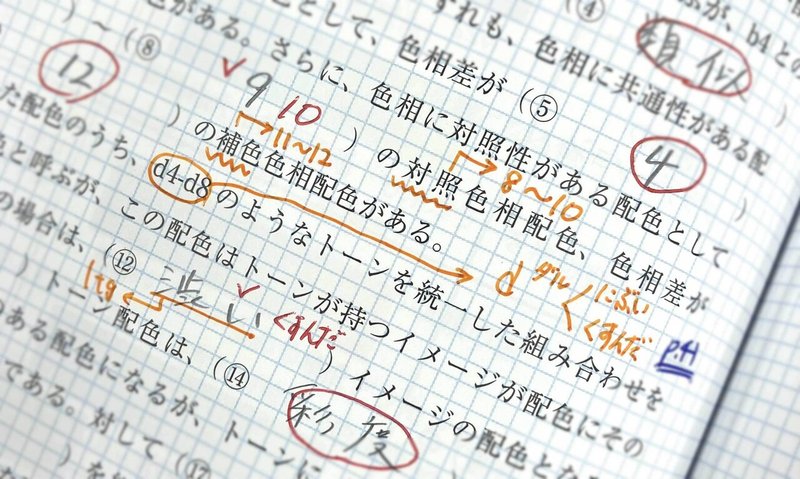 (④
ぶが、b4との
類似
ずれも、色相に共通性がある配
として、色相差が (⑤ 4 )
色がある。さらに、色相に対照性がある配色として
) ～ (⑧ 9 10 ) の対照色相配色、色相差が
8～10
12 ) の補色色相配色がある。
11～12
た配色のうち、d4-d8のようなトーンを統一した組み合わせを
d ダル にぶい
くすんだ
P.41
色と呼ぶが、この配色はトーンが持つイメージが配色にその
の場合は、(⑫ 渋い ) イメージの配色とな
くすんだ
ltg
) トーン配色は、(⑭ 彩度
のある配色になるが、トーンに
である。対して (⑰